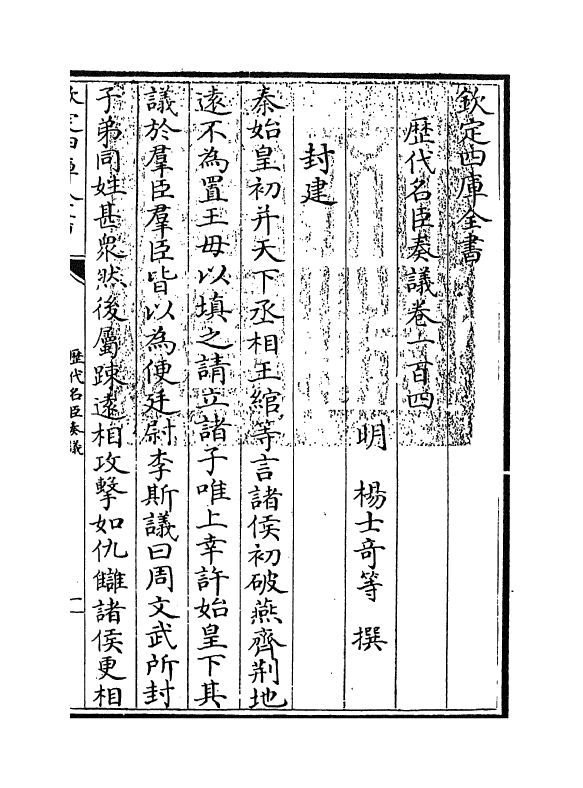 欽定四庫全書
歴代名臣奏議卷一百四
明 楊士奇等 撰
封建
秦始皇初并天下丞相王綰等言諸侯初破燕齊荆地
遠不為置王毋以填之請立諸子唯上幸許始皇下其
議於羣臣羣臣皆以為便廷尉李斯議曰周文武所封
子弟同姓甚衆然後屬踈遠相攻擊如仇讎諸侯更相
欽定四庫全書
歴代名臣奏議